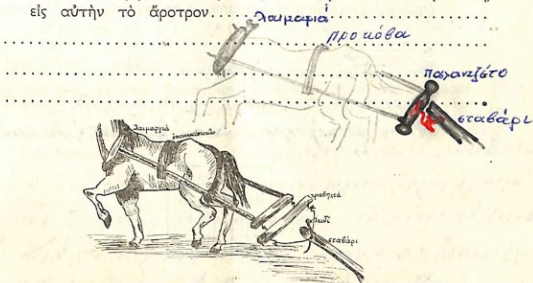 εἰς αὐτὴν τὸ ἄροτρον
λαιμαριά
προκόβα
παλαντζότο
σταβάρι
λαιμαργιά
τραβηχτά
σταβάρι